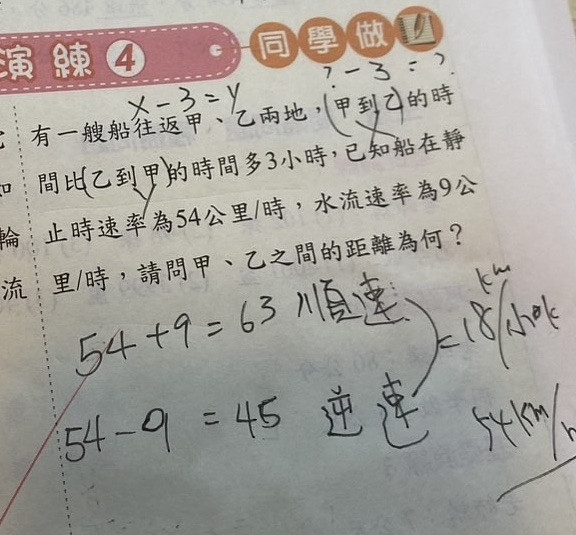 演練4
同學做
? - 3 = ?
x - 3 = y
有一艘船往返甲、乙兩地,(甲到乙)的時
x
間比(乙到甲)的時間多3小時,已知船在靜
y
止時速率為54公里/時,水流速率為9公
里/時,請問甲、乙之間的距離為何?
和
輪
流
54 + 9 = 63 順速
= 18 km/小時
54 - 9 = 45 逆速
54 km/h